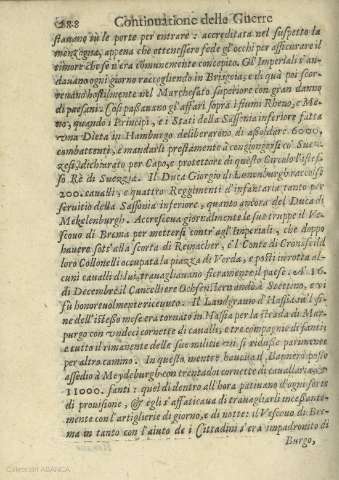 288 Continuatione delle Guerre
stauano sù le porte per entrare: accreditata nel suspetto la
menzogna, appena che ottenessero fede gl'occhi per assicurare il
timore che se n'era comunemente concepito. Gl'Imperiali s'an-
dauano ogni giorno raccogliendo in Brisgoia; e di quà poi scor-
reuano hostilmente nel Marchesato superiore con gran danno
di paesani. Così passauano gl'affari soprà i fiumi Rheno, e Me-
no, quando i Principi, e i Stati della Sassonia inferiore fatta
vna Dieta in Hamburgo deliberarono di assoldare 6000.
combattenti, e mandarli prestamente à congiongersi co' Suez-
zesi, dichiarato per Capo, e protettore di questo Circolo l'istes-
so Rè di Suezzia. Il Duca Giorgio di Lunemburgh raccolsi
200. caualli, e quattro Reggimenti d'infantaria tanto per
seruitio della Sassonia inferiore, quanto ancora del Duca di
Mekelenburgh. Accresceua giornalmente le sue truppe il Ve-
scouo di Brema per mettersi contr'agl'Imperiali, che doppo
hauere sott'alla scorta di Reinacher, e'l Conte di Cronsfeld
loro Collonelli occupata la piazza di Verda, e posti in rotta al-
cuni caualli di lui, trauagliauano fieramente il paese. A 16.
di Decembre il Cancelliere Ochsenstern andò à Soetino, e vi
fù honoreuolmente riceuuto. Il Landgrauio d'Hassia in l fi-
ne dell'istesso mese era tornato in Hassia per la strada di Mar-
purgo con vndeci cornette di caualli, e tre compagnie di fanti;
e tutto il rimanente delle sue militie vi si ridusse parimente
per altro camino. In questo mentre haueua il Bannero posto
assedio à Meydeburgh con trentadoi cornette di caualleria, e
11000. fanti: quei di dentro all'hora patiuano d'ogni sorte
di prouisione, & egli s'affaticaua di trauagliarli incessante-
mente con l'artiglierie di giorno, e di notte: il Vescouo di Bre-
ma in tanto con l'aiuto de i Cittadini s'era impadronito di
Burgo,
Colección ABANCA